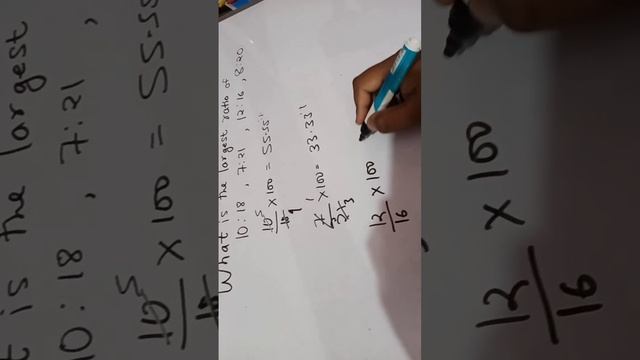 What is the largest ratio of
10:18, 7:21, 12:16, 8:20
10 5 × 100 = 55.55
7 1 × 100 = 33.33
21 3
12 × 100
16